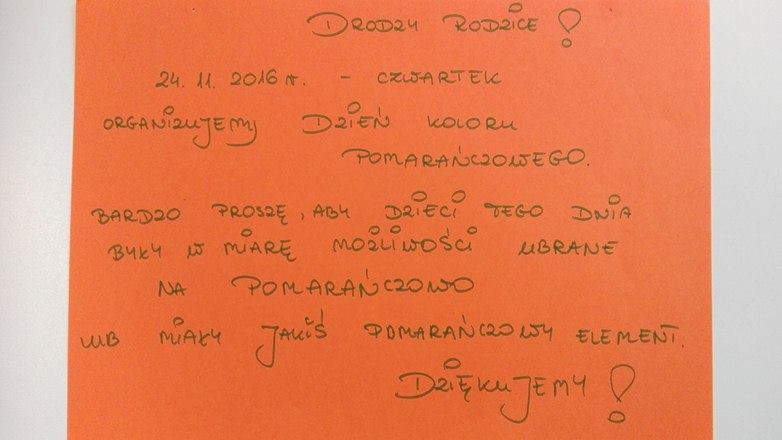 DRODZY RODZICE!
24. 11. 2016 r. - CZWARTEK
ORGANIZUJEMY DZIEŃ KOLORU
POMARAŃCZOWEGO.
BARDZO PROSZĘ, ABY DZIECI TEGO DNIA
BYŁY W MIARĘ MOŻLIWOŚCI UBRANE
NA POMARAŃCZOWO
LUB MIAŁY JAKIŚ POMARAŃCZOWY ELEMENT.
DZIĘKUJEMY!